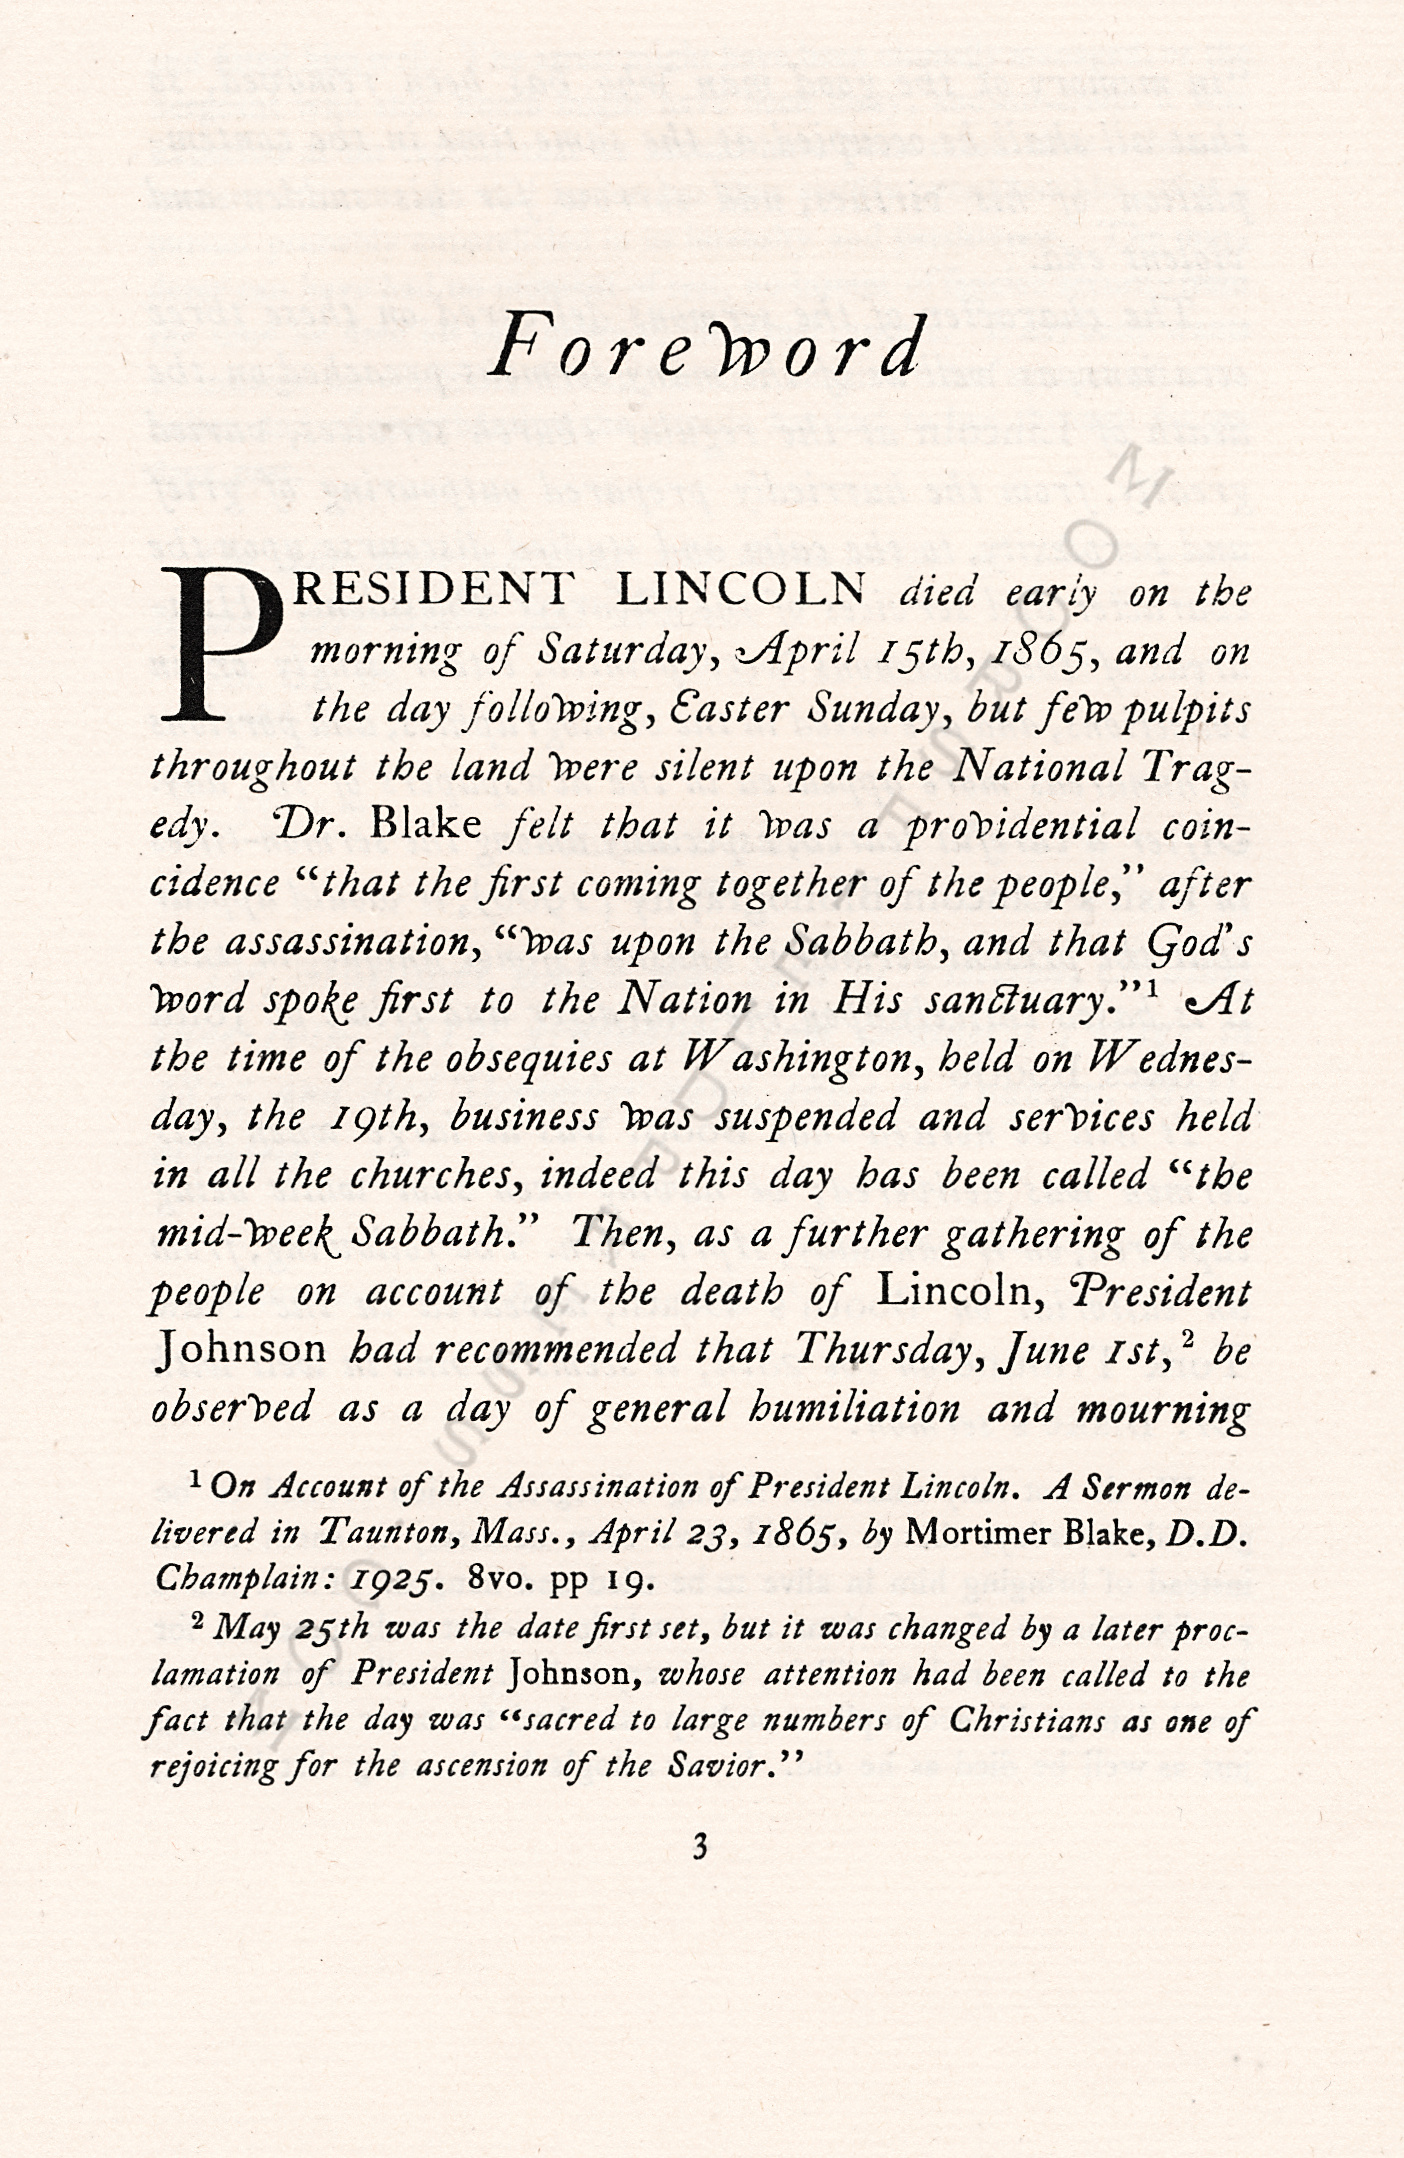 Foreword
PRESIDENT LINCOLN died early on the
morning of Saturday, April 15th, 1865, and on
the day following, Easter Sunday, but few pulpits
throughout the land were silent upon the National Trag-
edy. Dr. Blake felt that it was a providential coin-
cidence “that the first coming together of the people,” after
the assassination, “was upon the Sabbath, and that God’s
word spoke first to the Nation in His sanctuary.”¹ At
the time of the obsequies at Washington, held on Wednes-
day, the 19th, business was suspended and services held
in all the churches, indeed this day has been called “the
mid-week Sabbath.” Then, as a further gathering of the
people on account of the death of Lincoln, President
Johnson had recommended that Thursday, June 1st,² be
observed as a day of general humiliation and mourning
¹ On Account of the Assassination of President Lincoln. A Sermon de-
livered in Taunton, Mass., April 23, 1865, by Mortimer Blake, D.D.
Champlain: 1925. 8vo. pp 19.
² May 25th was the date first set, but it was changed by a later proc-
lamation of President Johnson, whose attention had been called to the
fact that the day was “sacred to large numbers of Christians as one of
rejoicing for the ascension of the Savior.”
3